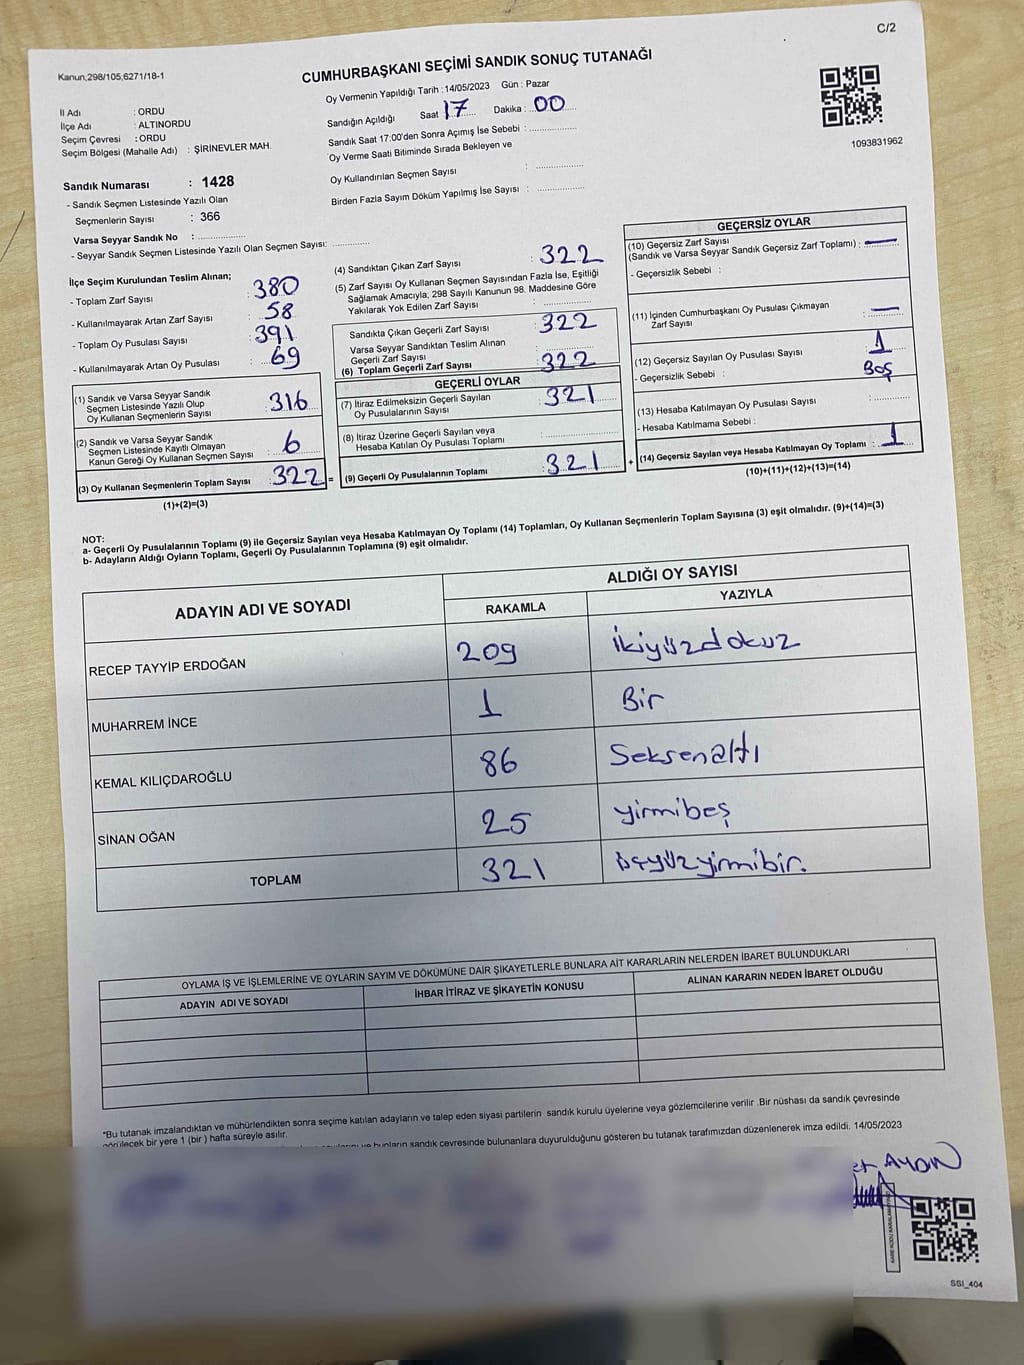 C/2
Kanun,298/105,6271/18-1
CUMHURBAŞKANI SEÇİMİ SANDIK SONUÇ TUTANAĞI
Oy Vermenin Yapıldığı Tarih :14/05/2023 Gün : Pazar
İl Adı : ORDU
İlçe Adı : ALTINORDU
Seçim Çevresi : ORDU
Seçim Bölgesi (Mahalle Adı) : ŞİRİNEVLER MAH.
Sandığın Açıldığı Saat 17 Dakika : 00
Sandık Saat 17:00'den Sonra Açımış İse Sebebi :
Oy Verme Saati Bitiminde Sırada Bekleyen ve
Oy Kullandırılan Seçmen Sayısı :
Birden Fazla Sayım Döküm Yapılmış İse Sayısı :
1093831962
Sandık Numarası : 1428
- Sandık Seçmen Listesinde Yazılı Olan
Seçmenlerin Sayısı : 366
Varsa Seyyar Sandık No :
- Seyyar Sandık Seçmen Listesinde Yazılı Olan Seçmen Sayısı:
İlçe Seçim Kurulundan Teslim Alınan;
- Toplam Zarf Sayısı : 380
- Kullanılmayarak Artan Zarf Sayısı : 58
- Toplam Oy Pusulası Sayısı : 391
- Kullanılmayarak Artan Oy Pusulası : 69
(1) Sandık ve Varsa Seyyar Sandık
Seçmen Listesinde Yazılı Olup
Oy Kullanan Seçmenlerin Sayısı : 316
(2) Sandık ve Varsa Seyyar Sandık
Seçmen Listesinde Kayıtlı Olmayan
Kanun Gereği Oy Kullanan Seçmen Sayısı : 6
(3) Oy Kullanan Seçmenlerin Toplam Sayısı : 322 =
(1)+(2)=(3)
(4) Sandıktan Çıkan Zarf Sayısı : 322
(5) Zarf Sayısı Oy Kullanan Seçmen Sayısından Fazla İse, Eşitliği
Sağlamak Amacıyla; 298 Sayılı Kanunun 98. Maddesine Göre
Yakılarak Yok Edilen Zarf Sayısı :
Sandıkta Çıkan Geçerli Zarf Sayısı : 322
Varsa Seyyar Sandıktan Teslim Alınan
Geçerli Zarf Sayısı :
(6) Toplam Geçerli Zarf Sayısı : 322
GEÇERLİ OYLAR
(7) İtiraz Edilmeksizin Geçerli Sayılan
Oy Pusulalarının Sayısı : 321
(8) İtiraz Üzerine Geçerli Sayılan veya
Hesaba Katılan Oy Pusulası Toplamı :
(9) Geçerli Oy Pusulalarının Toplamı : 321 +
GEÇERSİZ OYLAR
(10) Geçersiz Zarf Sayısı
(Sandık ve Varsa Seyyar Sandık Geçersiz Zarf Toplamı) : —
- Geçersizlik Sebebi :
(11) İçinden Cumhurbaşkanı Oy Pusulası Çıkmayan
Zarf Sayısı : —
(12) Geçersiz Sayılan Oy Pusulası Sayısı : 1
- Geçersizlik Sebebi : Boş
(13) Hesaba Katılmayan Oy Pusulası Sayısı :
- Hesaba Katılmama Sebebi :
(14) Geçersiz Sayılan veya Hesaba Katılmayan Oy Toplamı : 1
(10)+(11)+(12)+(13)=(14)
NOT:
a- Geçerli Oy Pusulalarının Toplamı (9) ile Geçersiz Sayılan veya Hesaba Katılmayan Oy Toplamı (14) Toplamları, Oy Kullanan Seçmenlerin Toplam Sayısına (3) eşit olmalıdır. (9)+(14)=(3)
b- Adayların Aldığı Oyların Toplamı, Geçerli Oy Pusulalarının Toplamına (9) eşit olmalıdır.
ADAYIN ADI VE SOYADI
ALDIĞI OY SAYISI
RAKAMLA YAZIYLA
RECEP TAYYİP ERDOĞAN 209 ikiyüzdokuz
MUHARREM İNCE 1 Bir
KEMAL KILIÇDAROĞLU 86 Seksenaltı
SİNAN OĞAN 25 yirmibeş
TOPLAM 321 üçyüzyirmibir.
OYLAMA İŞ VE İŞLEMLERİNE VE OYLARIN SAYIM VE DÖKÜMÜNE DAİR ŞİKAYETLERLE BUNLARA AİT KARARLARIN NELERDEN İBARET BULUNDUKLARI
ADAYIN ADI VE SOYADI İHBAR İTİRAZ VE ŞİKAYETİN KONUSU ALINAN KARARIN NEDEN İBARET OLDUĞU
*Bu tutanak imzalandıktan ve mühürlendikten sonra seçime katılan adayların ve talep eden siyasi partilerin sandık kurulu üyelerine veya gözlemcilerine verilir .Bir nüshası da sandık çevresinde
görülecek bir yere 1 (bir ) hafta süreyle asılır.
ve bunların sandık çevresinde bulunanlara duyurulduğunu gösteren bu tutanak tarafımızdan düzenlenerek imza edildi. 14/05/2023
AYDIN
SSI_404